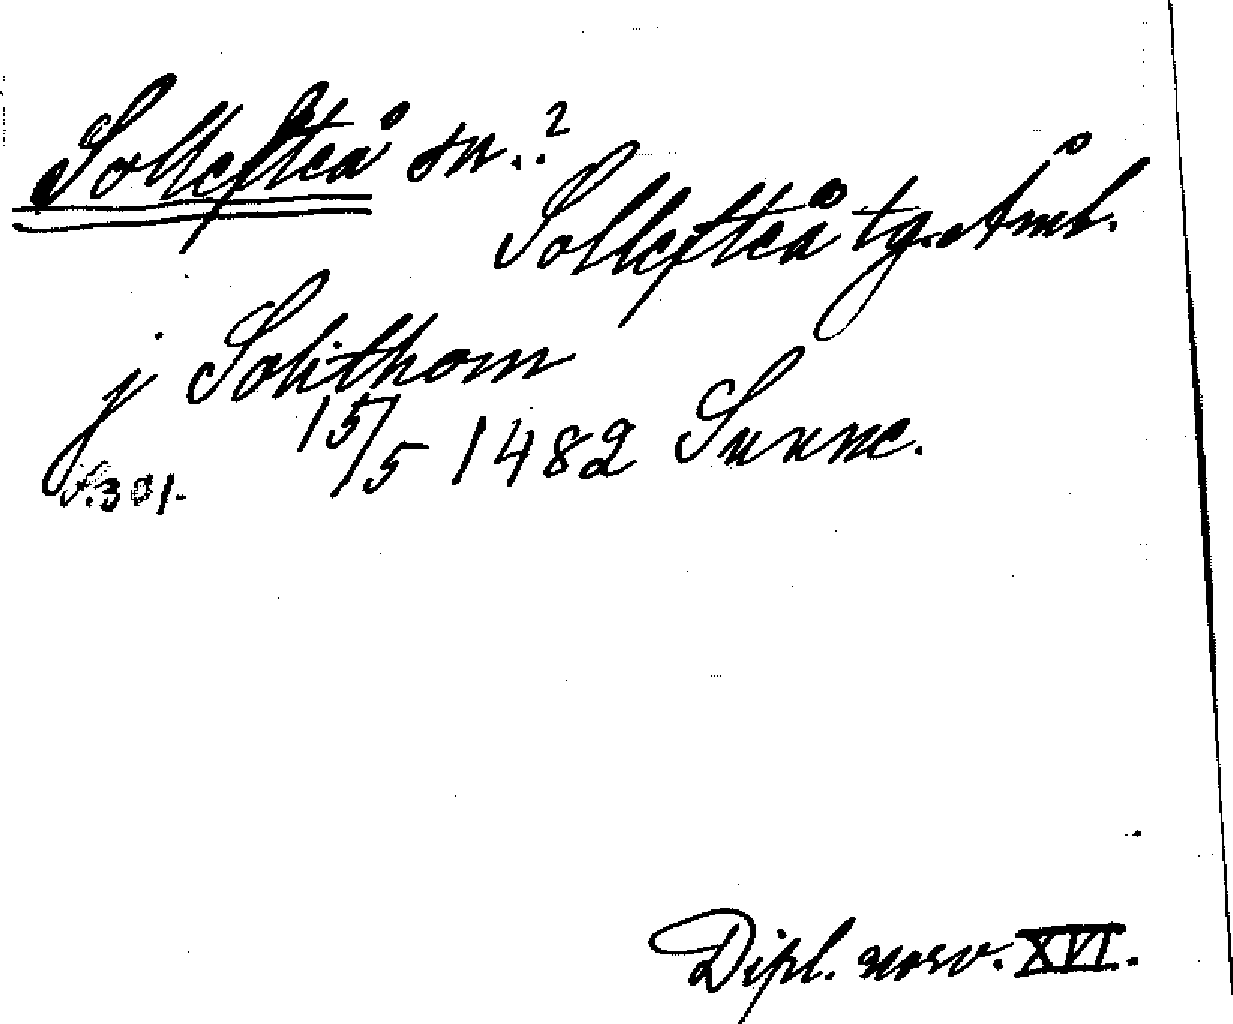 Sollefteå sn..?
Sollefteå tg. Ångml.
j Solithom
15/5 1482 Sunne.
S. 301.
Dipl. norv. XVI.